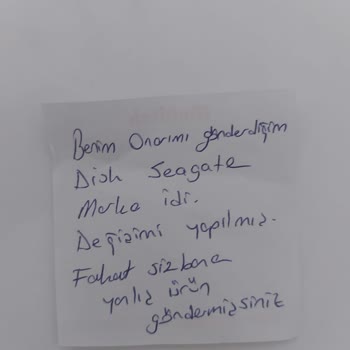 Benim Onarımı gönderdiğim
Disk Seagate
Marka idi.
Değişimi yapılmış.
Fakat siz bana
yanlış ürün
göndermişsiniz